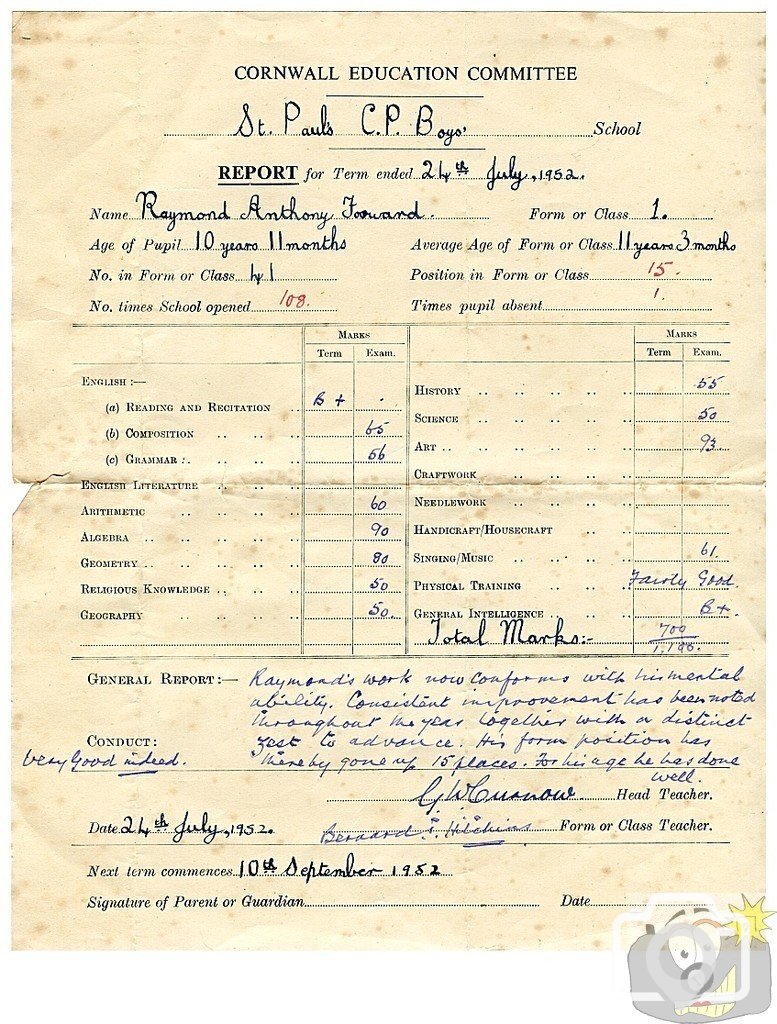 CORNWALL EDUCATION COMMITTEE
St. Paul's C.P. Boys' School
REPORT for Term ended 24th July, 1952.
Name Raymond Anthony Forward. Form or Class 1.
Age of Pupil 10 years 11 months Average Age of Form or Class 11 years 3 months
No. in Form or Class 41 Position in Form or Class 15.
No. times School opened 108. Times pupil absent 1.
MARKS MARKS
Term Exam. Term Exam.
ENGLISH :—
(a) READING AND RECITATION B+
(b) COMPOSITION 65
(c) GRAMMAR 56
ENGLISH LITERATURE
ARITHMETIC 60
ALGEBRA 90
GEOMETRY 80
RELIGIOUS KNOWLEDGE 50
GEOGRAPHY 50.
HISTORY 55
SCIENCE 50
ART 93
CRAFTWORK
NEEDLEWORK
HANDICRAFT/HOUSECRAFT
SINGING/MUSIC 61.
PHYSICAL TRAINING Fairly Good.
GENERAL INTELLIGENCE B+.
Total Marks:- 700
1,100.
GENERAL REPORT:— Raymond's work now conforms with his mental
ability. Consistent improvement has been noted
throughout the year together with a distinct
zest to advance. His form position has
thereby gone up 15 places. For his age he has done
well.
CONDUCT:
Very Good indeed.
G W Curnow Head Teacher.
Date 24th July, 1952. Bernard Hitchins Form or Class Teacher.
Next term commences 10th September 1952
Signature of Parent or Guardian Date